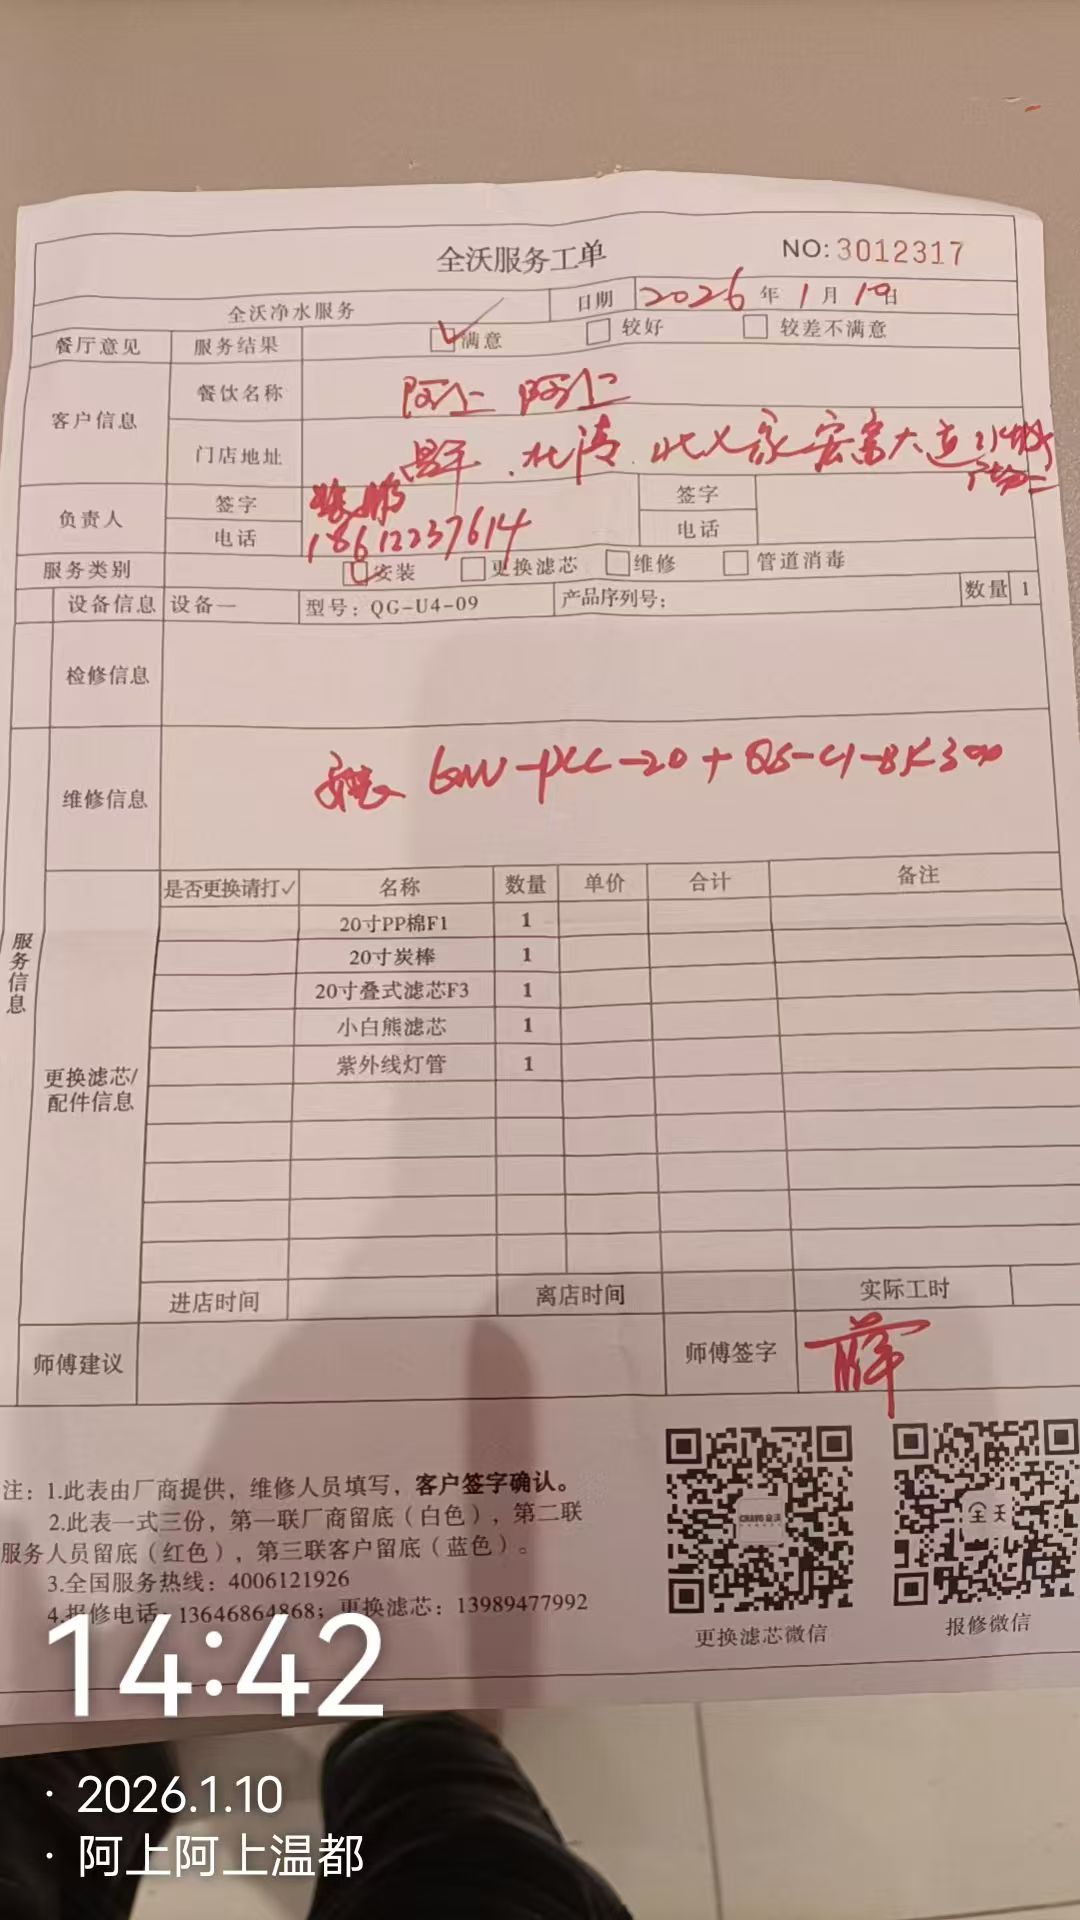 全沃服务工单 NO:3012317
全沃净水服务 日期 2026年1月10日
餐厅意见 服务结果 满意 较好 较差不满意
客户信息 餐饮名称 阿上 阿上
门店地址 北清 宏富大道
负责人 签字 签字
电话 18612237614 电话
服务类别 安装 更换滤芯 维修 管道消毒
设备信息 设备一 型号：QG-U4-09 产品序列号： 数量 1
检修信息
维修信息 安装
服务信息
是否更换请打✓ 名称 数量 单价 合计 备注
20寸PP棉F1 1
20寸炭棒 1
20寸叠式滤芯F3 1
小白熊滤芯 1
紫外线灯管 1
更换滤芯/
配件信息
进店时间 离店时间 实际工时
师傅建议 师傅签字 薛
注：1.此表由厂商提供，维修人员填写，客户签字确认。
2.此表一式三份，第一联厂商留底（白色），第二联
服务人员留底（红色），第三联客户留底（蓝色）。
3.全国服务热线：4006121926
4.报修电话：13646864868；更换滤芯：13989477992
更换滤芯微信 报修微信
14:42
· 2026.1.10
· 阿上阿上温都